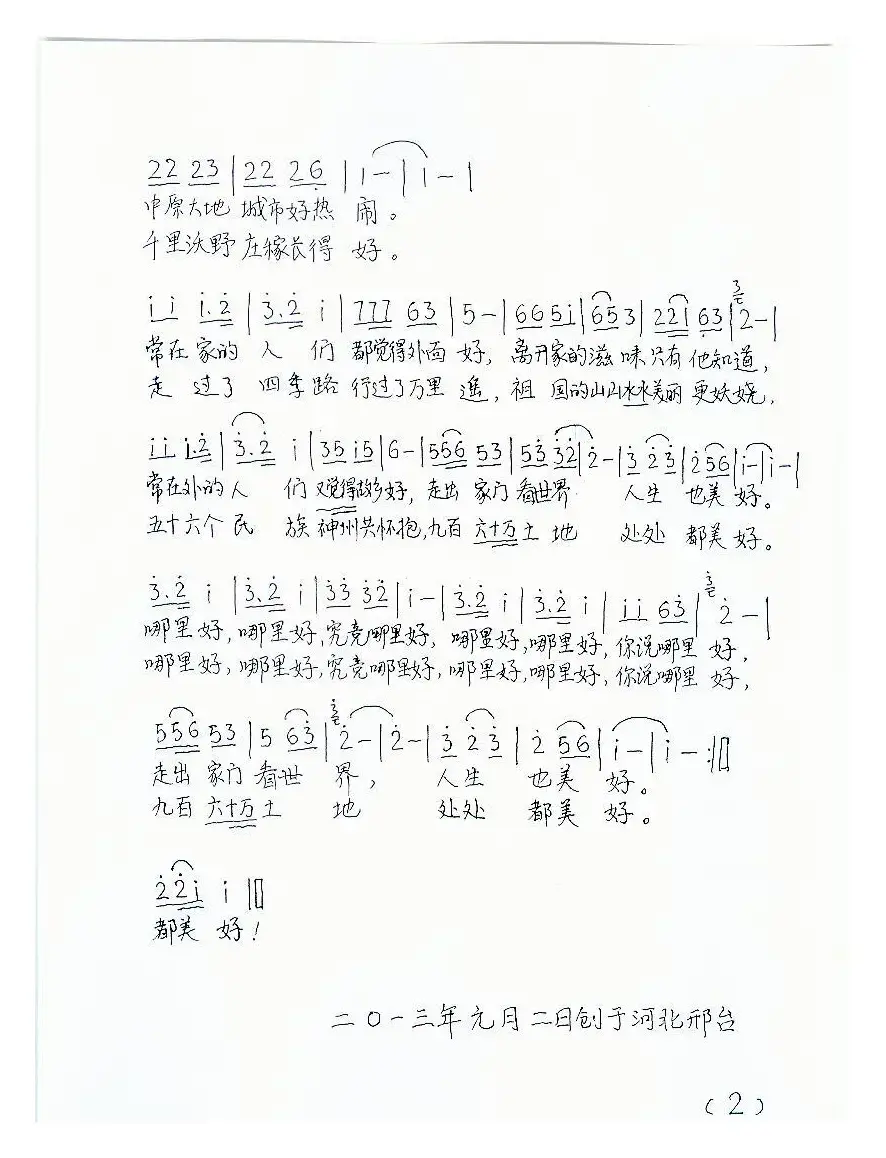 22 23 | 22 26 | i – | i – |
中原大地 城市好热 闹。
千里沃野 庄稼长得 好。
i i i.2 | 3.2 i | 777 63 | 5 – | 665i | 653 | 22i 63 | 3 2 – |
常在家的 人 们 都觉得外面 好, 离开家的滋 味只有 他知道,
走 过了 四季路 行过了万里 遥, 祖 国的山山水水美丽 更妖娆,
i i i.2 | 3.2 i | 35 i5 | 6 – | 556 53 | 53 32 | 2 – | 3 23 | 2 56 | i – | i – |
常在外的 人 们 又觉得故乡好, 走出 家门 看世界 人生 也美 好。
五十六个 民 族 神州共怀抱, 九百 六十万 土 地 处处 都美 好。
3.2 i | 3.2 i | 33 32 | i – | 3.2 i | 3.2 i | i i 63 | 3 2 – |
哪里 好, 哪里 好, 究竟哪里好, 哪里好, 哪里 好, 你说哪里 好,
哪里 好, 哪里 好, 究竟哪里好, 哪里好, 哪里 好, 你说哪里 好,
556 53 | 5 63 | 3 2 – | 2 – | 3 23 | 2 56 | i – | i – :‖
走出 家门 看世 界, 人生 也美 好。
九百 六十万 土 地 处处 都美 好。
22i i ‖
都美 好!
二〇一三年元月二日创于河北邢台
(2)